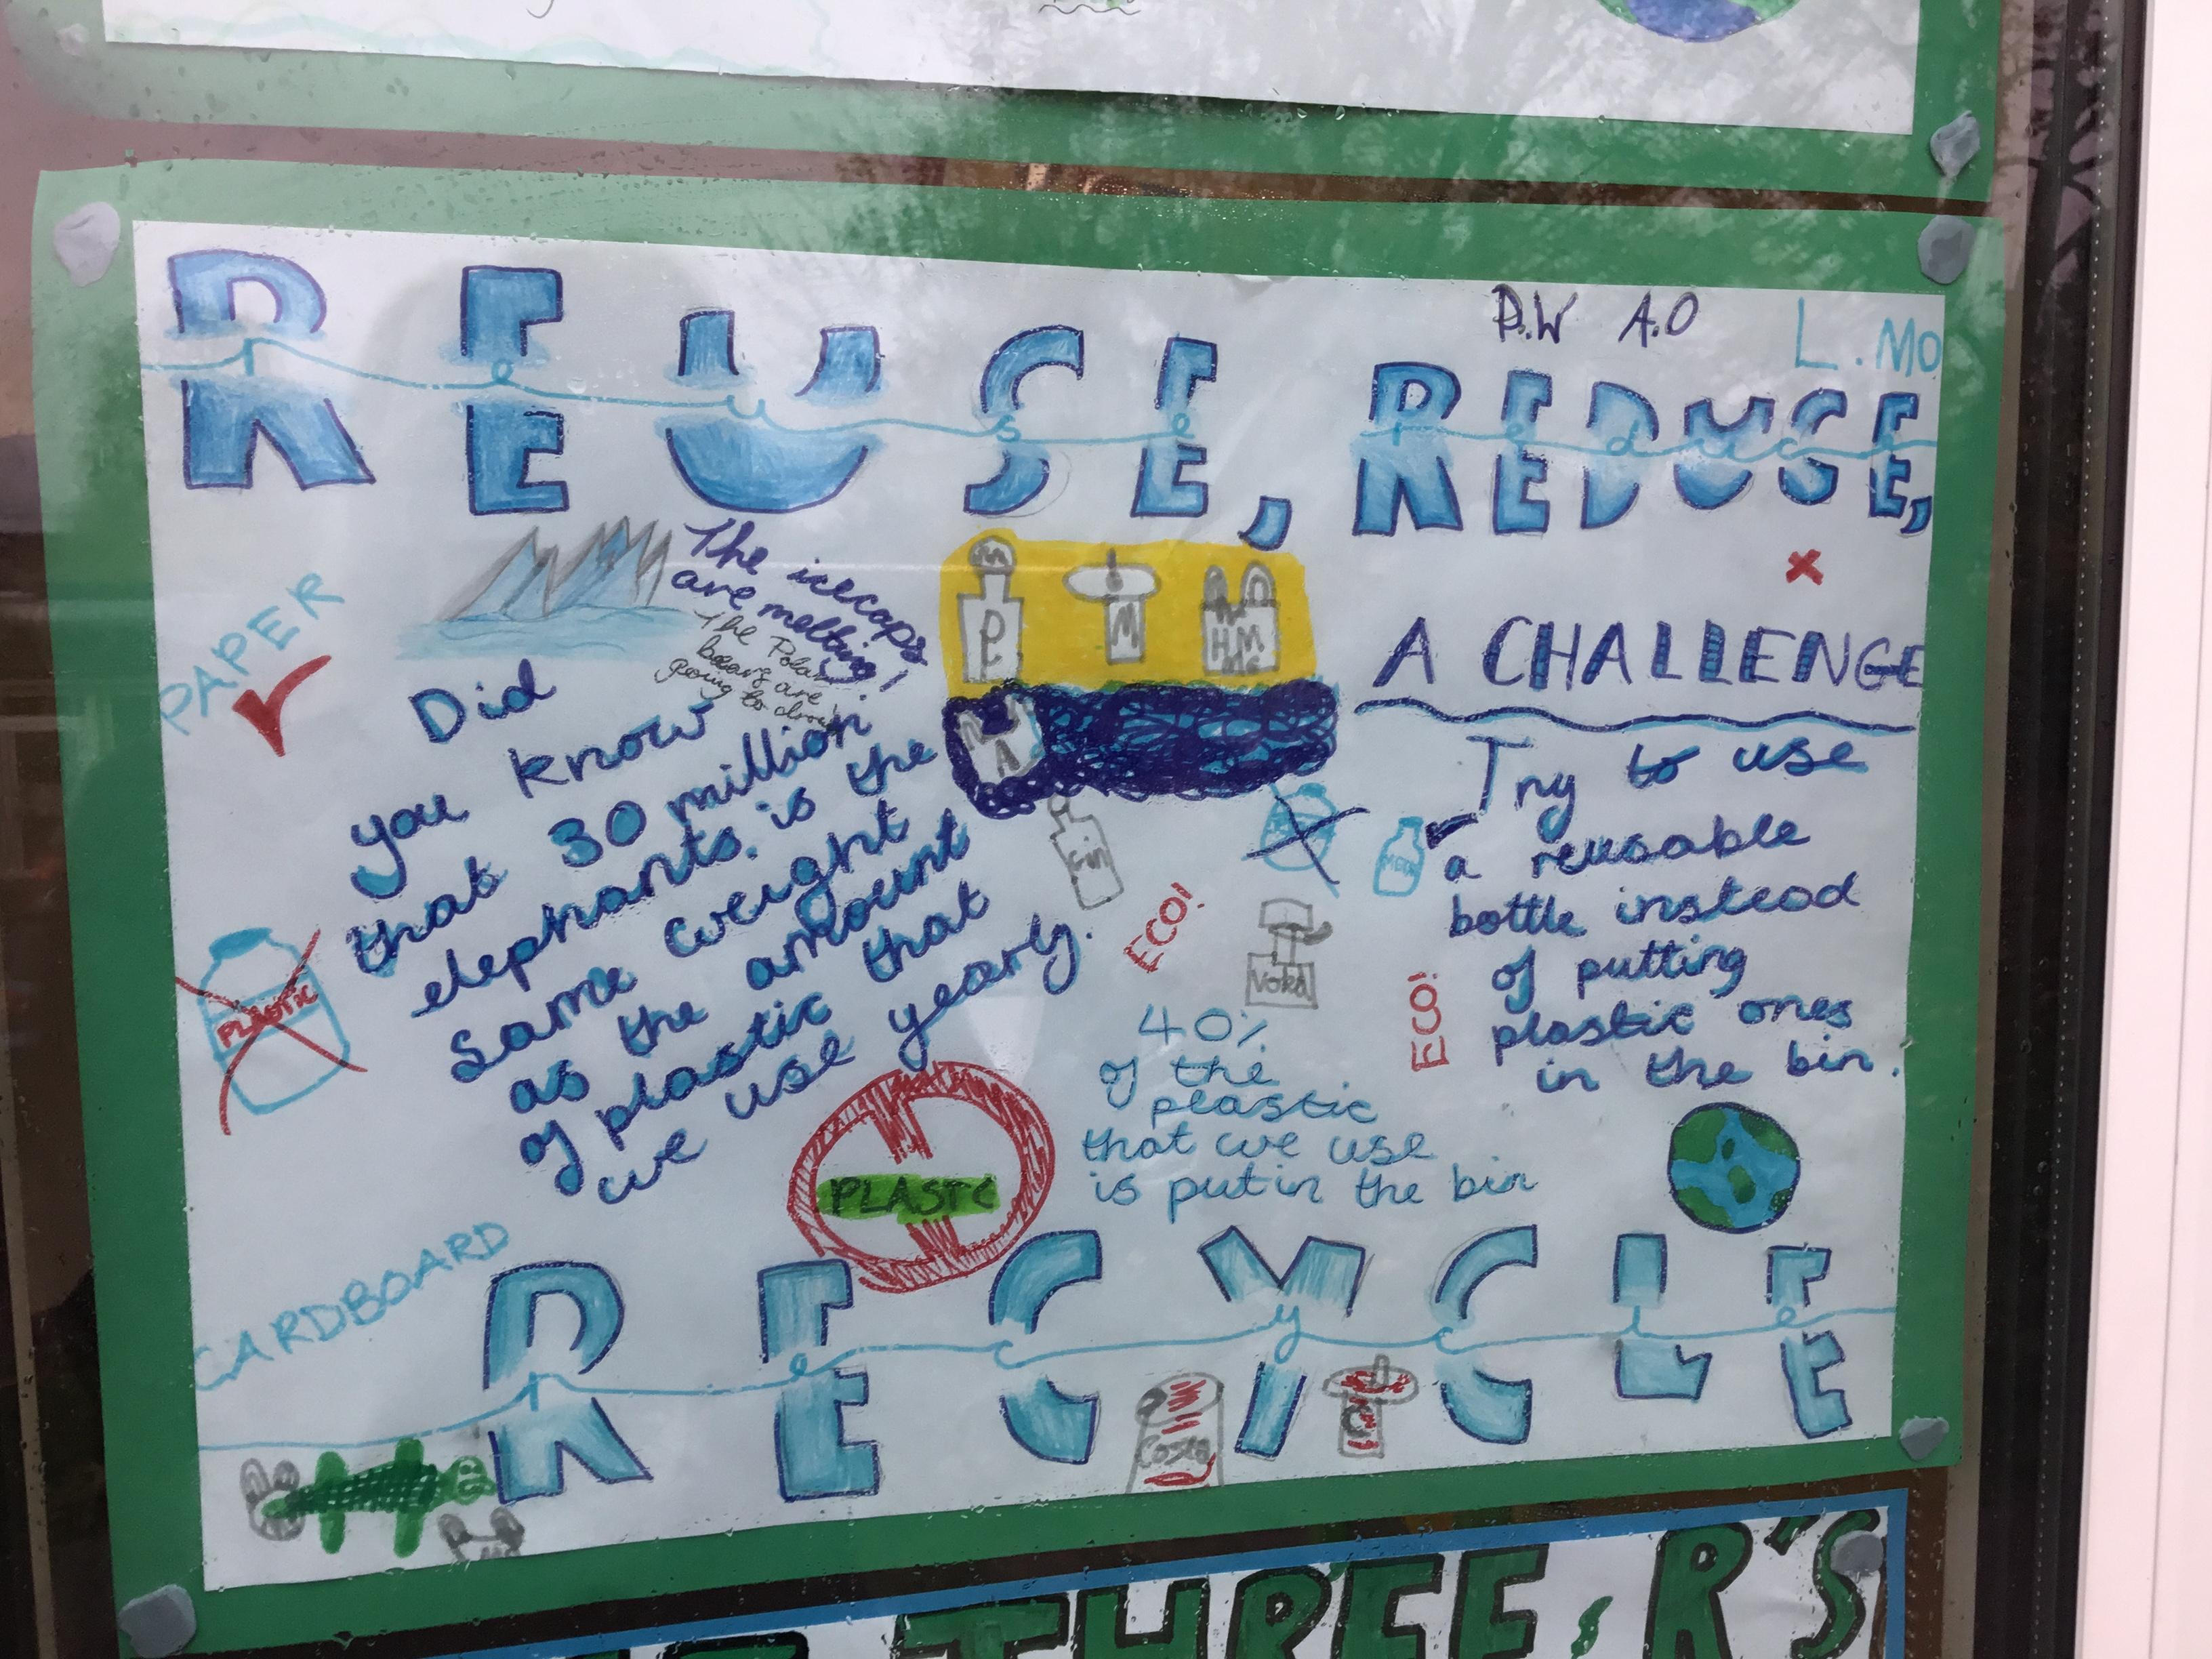 P.W A.O L.MO
REUSE, REDUCE,
reuse
reduce
The icecaps
are melting!
The Polar
bears are
going to drown
PAPER
Did
you know
that 30 million
elephants. is the
same weight
as the amount
of plastic that
we use yearly.
PLASTIC
P
M
H M
A
A CHALLENGE
Try to use
a reusable
bottle instead
of putting
plastic ones
in the bin.
ECO!
ECO!
40%
of the
plastic
that we use
is put in the bin
PLASTC
CARDBOARD
RECYCLE
recycle
Costa
C
THREE R'S